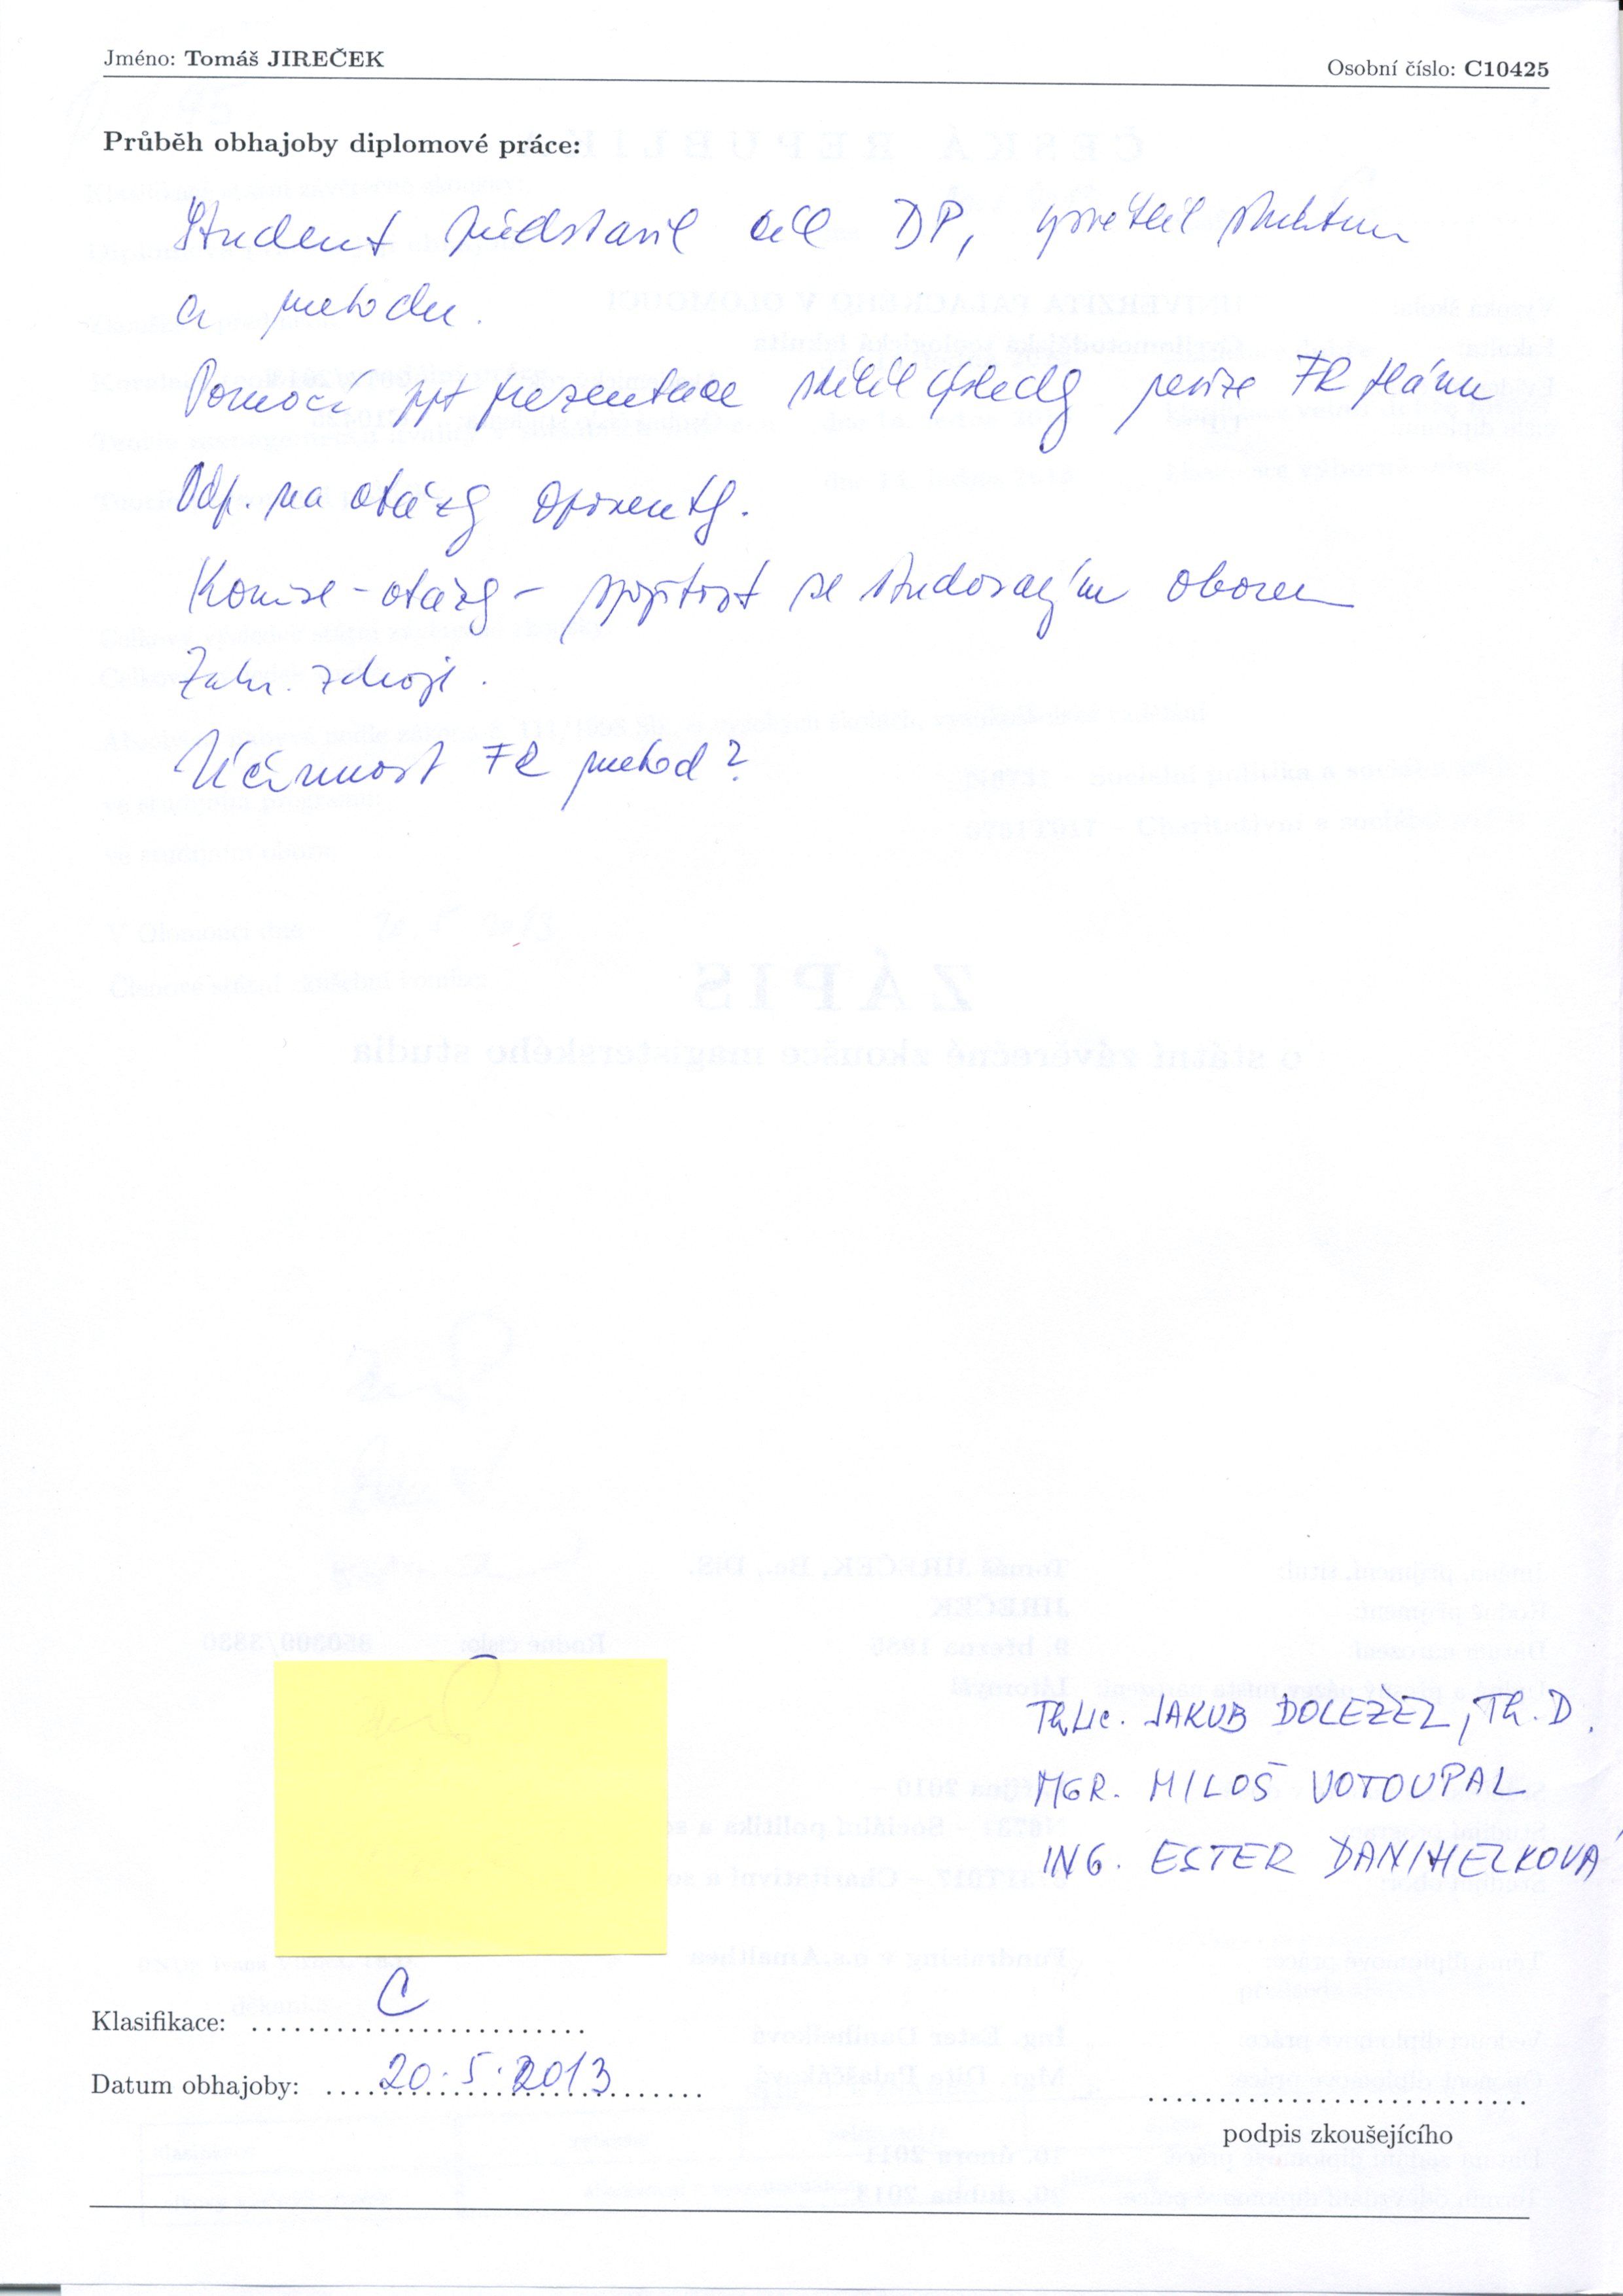 Jméno: Tomáš JIREČEK
Osobní číslo: C10425
Průběh obhajoby diplomové práce:
Student představil cíl DP, vysvětlil strukturu
a metodu.
Pomocí ppt prezentace sdělil výsledky revize FR plánu
Odp. na otázky oponenty.
Komise - otázky - spojitost se studovaným oborem
Zahr. zdroje.
Účinnost FR metod?
ThLic. JAKUB DOLEŽEL, Th.D.
MGR. MILOŠ VOTOUPAL
ING. ESTER DANIHELKOVÁ
Klasifikace: C
Datum obhajoby: 20.5.2013
podpis zkoušejícího